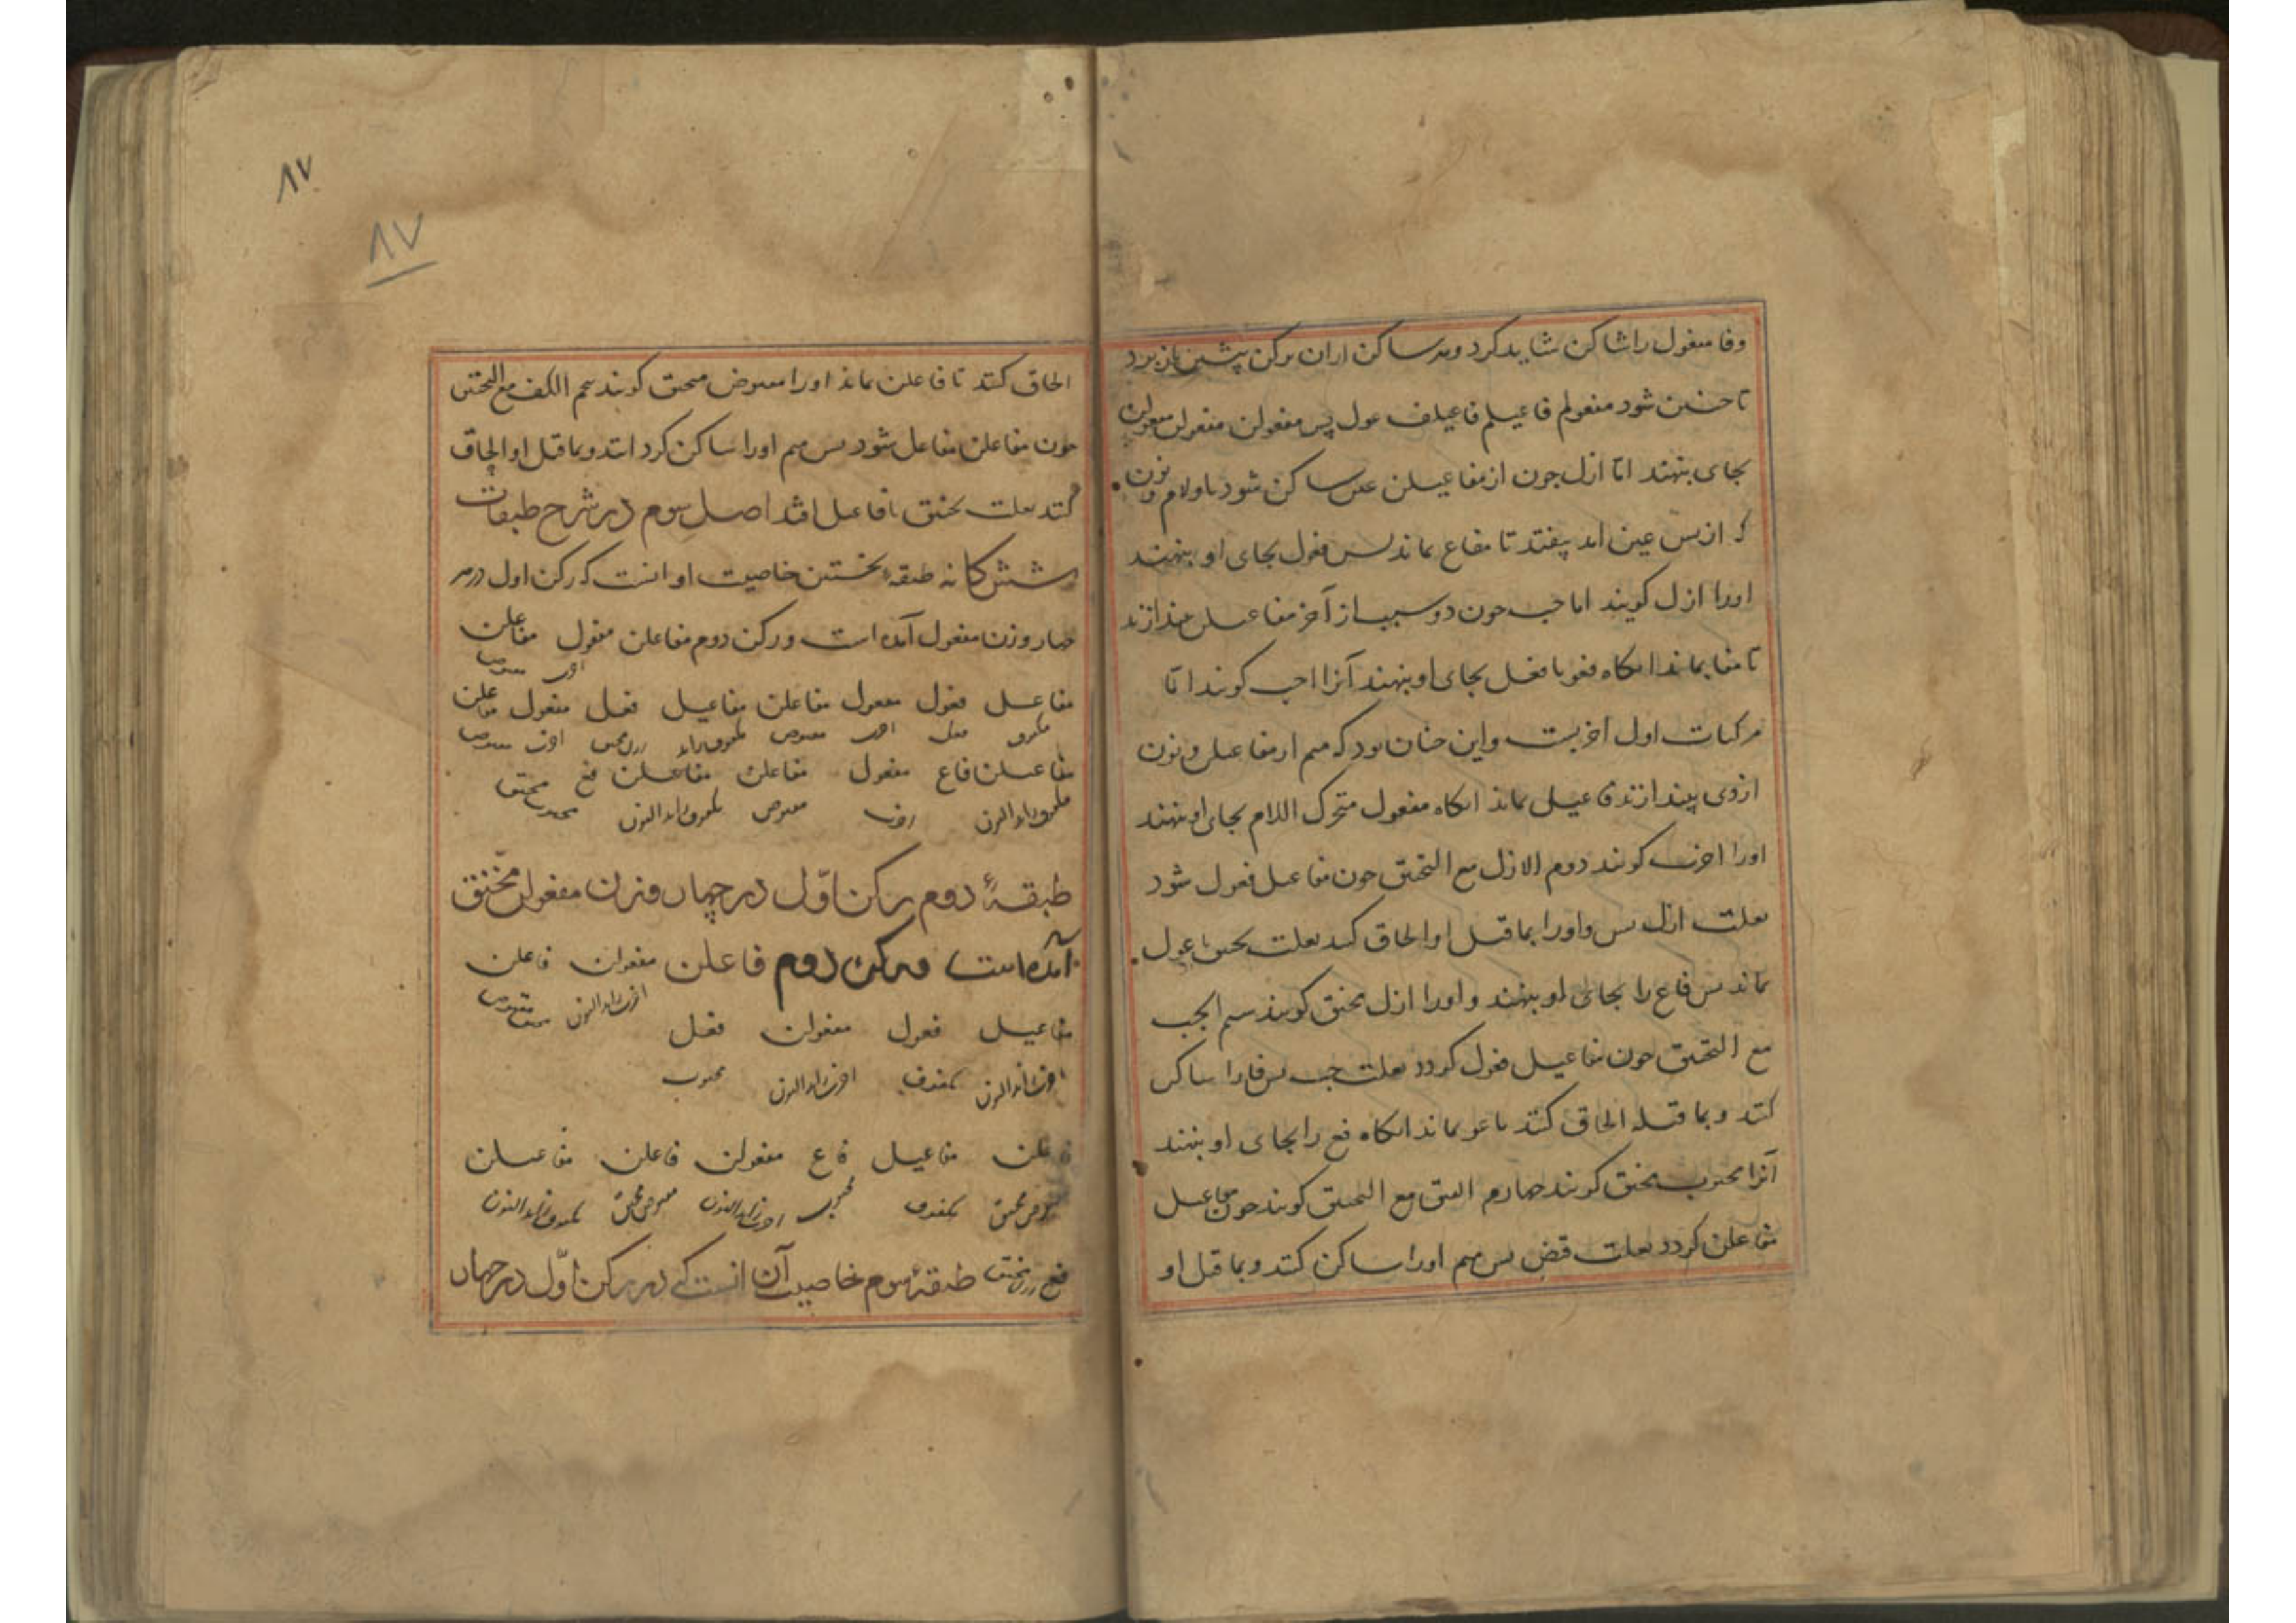 وفا مفعول را شاکن شاید کرد و هر ساکن ازان برکن پیشین باز برد
تا چنین شود مفعولم فاعیلم فاعیلف عول پس مفعولن مفعولن مفعولن
بجای بنهند اما ازل چون از مفاعیلن عین ساکن شود یا و لام و نون
که از پس عین اند بیفتد تا مفاع بماند پس فعول بجای او بنهند
اورا ازل کویند اما جب چون دو سبب از آخر مفاعیلن بیندازند
تا مفا بماند انکاه فعو یا فعل بجای او بنهند آنرا اجب کویند اما
مرکبات اول اخربست و این چنان بود که میم از مفاعیلن و نون
ازوی بیندازند فاعیل بماند انکاه مفعول متحرک اللام بجای او بنهند
اورا اخرب کویند دوم الازل مع التخنیق چون مفاعیل فعول شود
بعلت ازل پس و اورا بماقبل او الحاق کند بعلت تخنیق تا عول
بماند پس فاع را بجای او بنهند و اورا ازل مخنق کویند سیم الجب
مع التخنیق چون مفاعیل فعول کردد بعلت جب پس فا را ساکن
کنند و بماقبله الحاق کنند تا عو بماند انکاه فع را بجای او بنهند
آنرا مجبوب مخنق کویند چهارم القبض مع التخنیق کویند چون مفاعیل
مفاعلن کردد بعلت قبض پس میم اورا ساکن کنند و بماقبل او
۸۷
۸۷
الحاق کنند تا فاعلن بماند اورا مقبوض مخنق کویند پنجم الکف مع التخنیق
چون مفاعلن مفاعل شود پس میم اورا ساکن کرد اند و بماقبل او الحاق
کنند بعلت تخنیق تا فاعیل افتد اصل سوم در شرح طبقات
شش کانه طبقهٔ نخستین خاصیت او انست که رکن اول در هر
چهار وزن مفعول آمده است و رکن دوم مفاعلن مفعول مفاعلن
مفاعیل فعول مفعول مفاعلن مفاعیل فعل مفعول مفاعلن
مفاعیلن فاع مفعول مفاعلن مفاعیلن فع
طبقهٔ دوم رکن اوّل در چهار وزن مفعولن مخنّق
آمده است و رکن دوم فاعلن مفعولن فاعلن
مفاعیل فعول مفعولن فعل
اخرب زاید النون مکفوف اخرب زاید النون مجبوب
فاعلن مفاعیل فاع مفعولن فاعلن مفاعیلن
مقبوض مخنق مکفوف مجبوب اخرب زاید النون مقبوض مخنق مکفوف زاید النون
فع طبقهٔ سوم خاصیت آن انست که در رکن اوّل در چهار